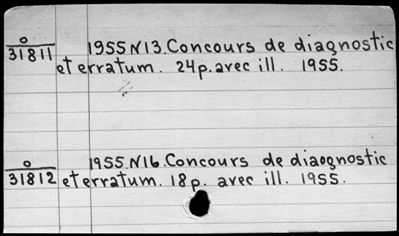 o
31811 1955 N13. Concours de diagnostic
et erratum. 24p. avec ill. 1955.
o
31812 1955. N16. Concours de diaognostic
et erratum. 18p. avec ill. 1955.